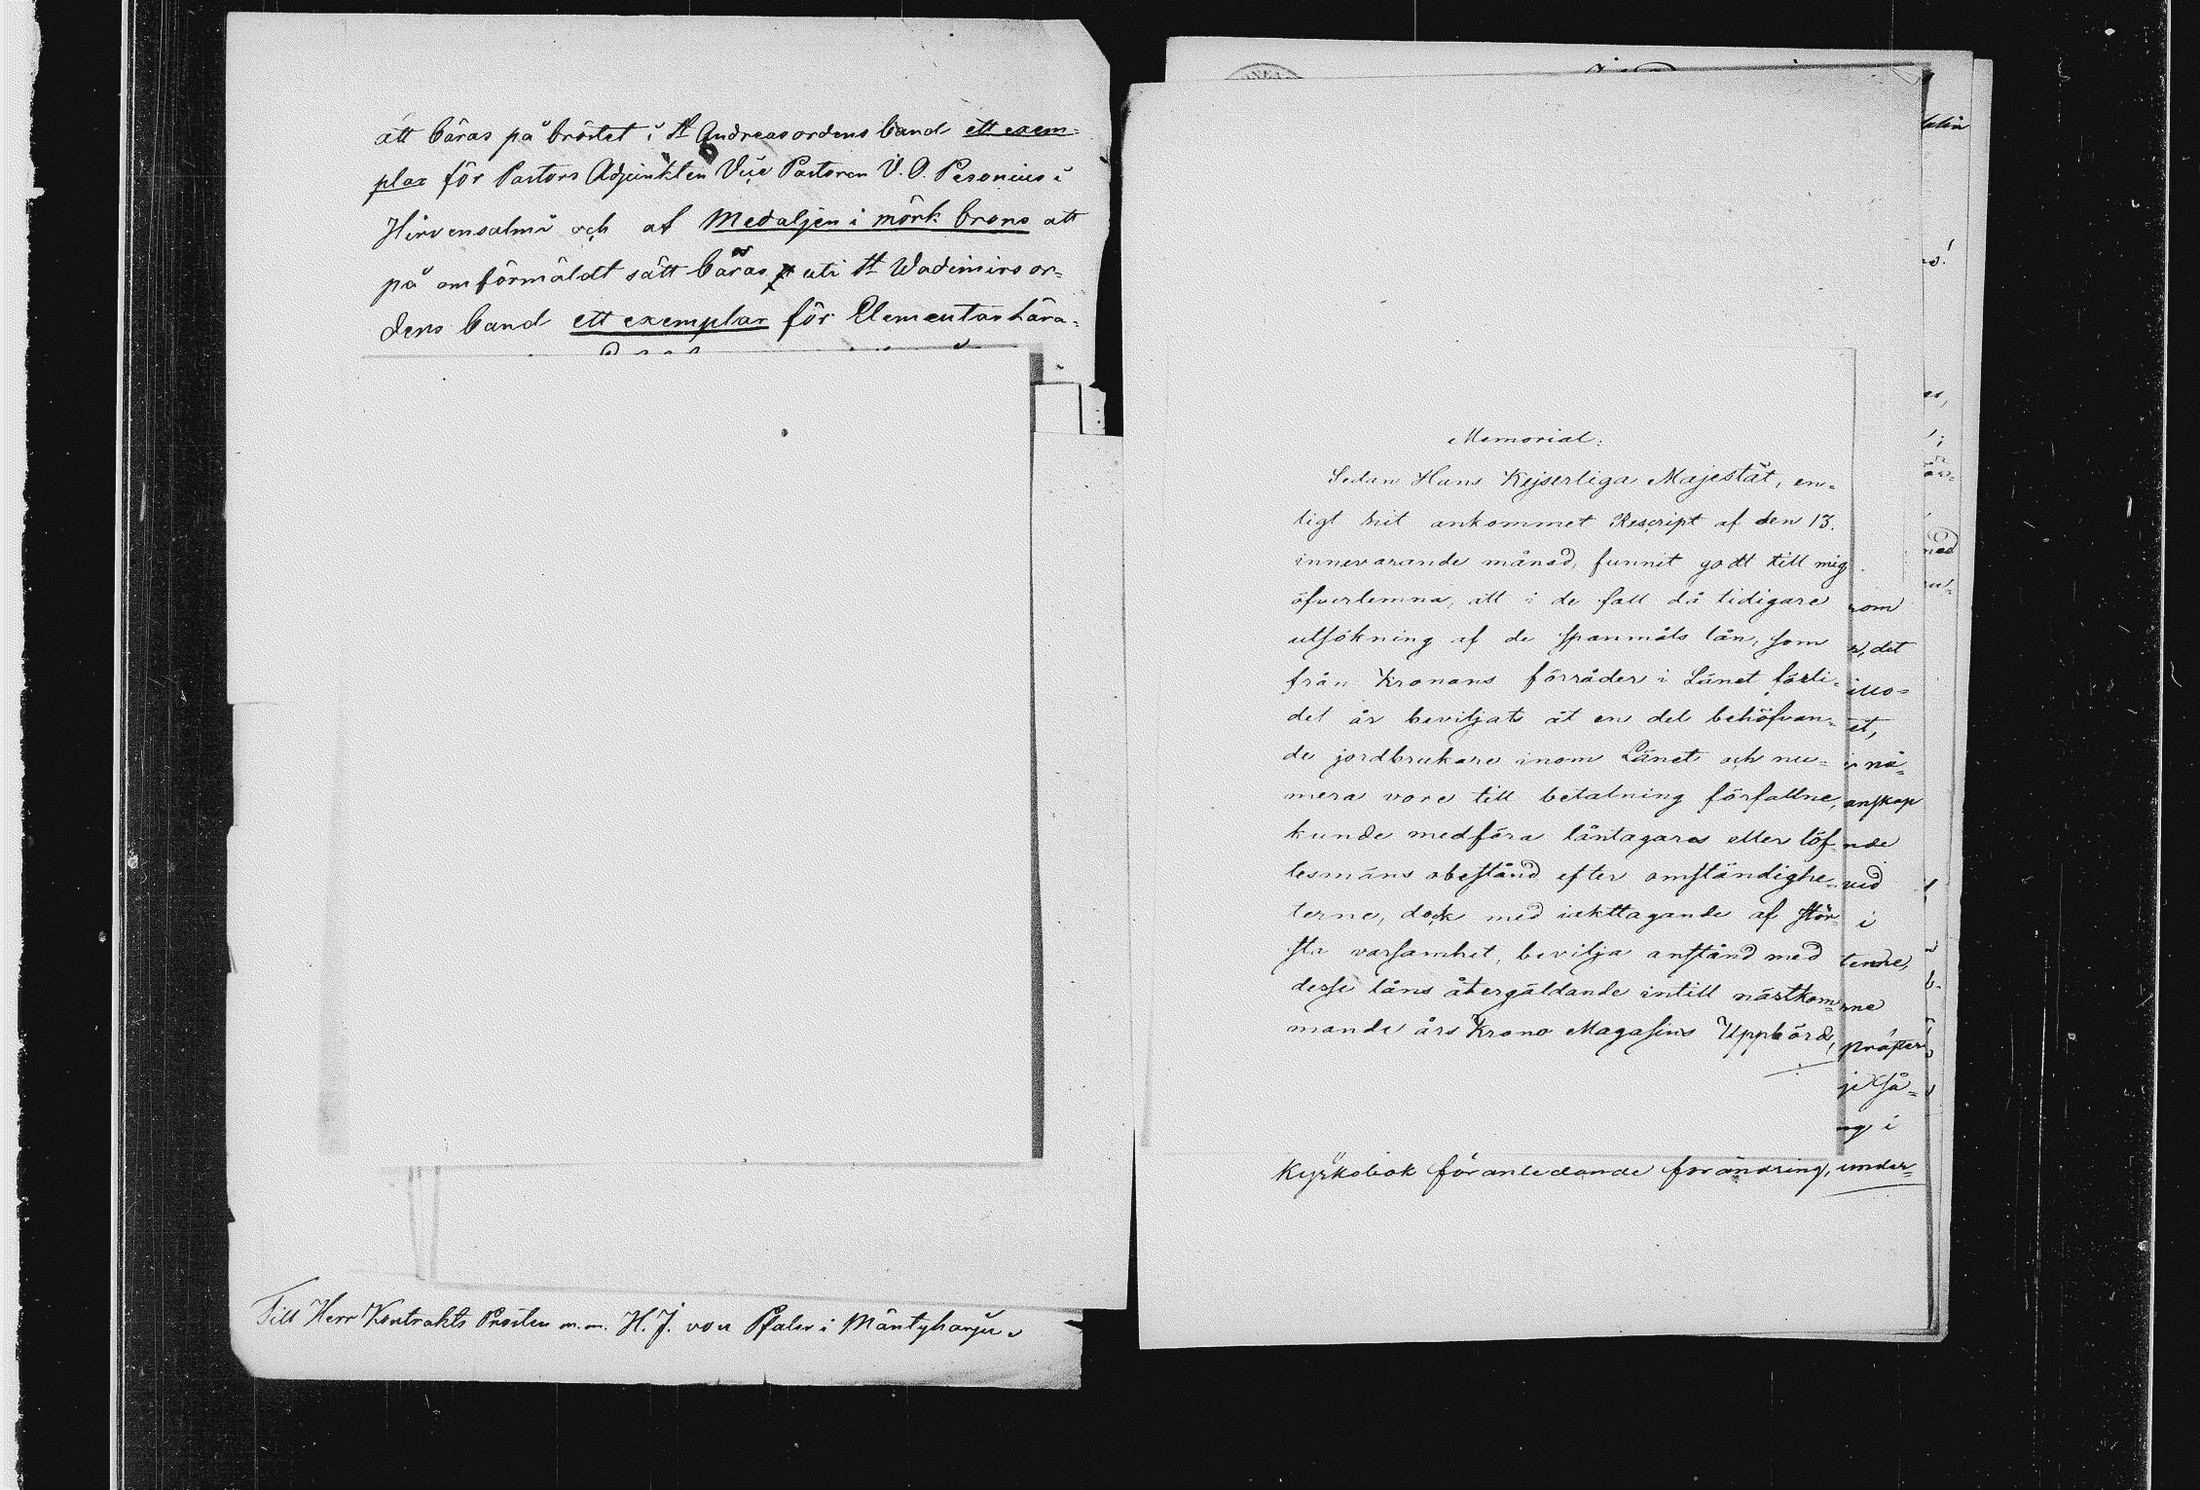 att bäras på bröstet i St Andreasordens band ett exem-
plar för Pastors Adjunkten Vice Pastoren V. O. Pesonius i
Hirvensalmi och af Medaljen i mörk brons att
på omförmäldt sätt bäras uti St Wladimirs or-
dens band ett exemplar för Elementar Lära-
Till Herr Kontrakts Prosten m.m. H. J. von Pfaler i Mäntyharju.
Memorial.
Sedan Hans Kejserliga Majestät, en-
ligt hit ankommet Rescript af den 13.
innevarande månad, funnit godt till mig
öfverlemna, att i de fall då tidigare
utsökning af de spanmåls lån, som
från Kronans förråder i Länet förli-
det år beviljats åt en del behöfvan-
de jordbrukare inom Länet och nu-
mera vore till betalning förfallne,
kunde medföra låntagares eller löf-
tesmäns obestånd efter omständighe-
terne, dock med iakttagande af stör-
sta varsamhet, bevilja anstånd med
desse låns återgäldande intill nästkom-
mande års Krono Magasins Uppbörd,
som
det
et,
nå-
anskap
nde
vid
i
så-
i
Kyrkobok föranledande förändring, under-